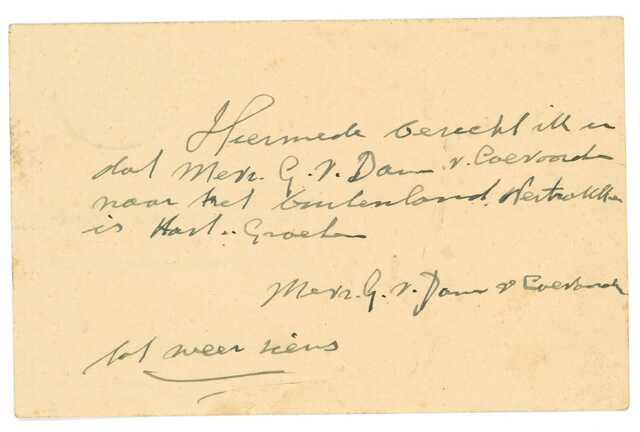 Hiermede berecht ik u
dat Mevr. G. v. Dam v. Coevorden
naar het buitenland Vertrokken
is Hart.. Groeten
Mevr. G. v. Dam v Coevorden
tot weer siens